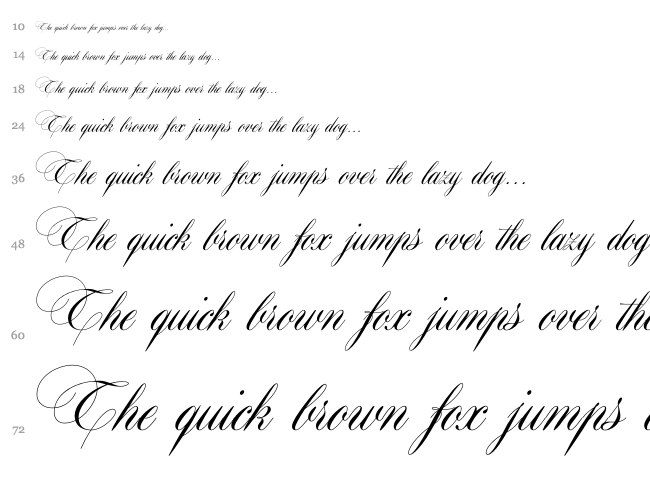 10 The quick brown fox jumps over the lazy dog...
14 The quick brown fox jumps over the lazy dog...
18 The quick brown fox jumps over the lazy dog...
24 The quick brown fox jumps over the lazy dog...
36 The quick brown fox jumps over the lazy dog...
48 The quick brown fox jumps over the lazy dog
60 The quick brown fox jumps over the
72 The quick brown fox jumps